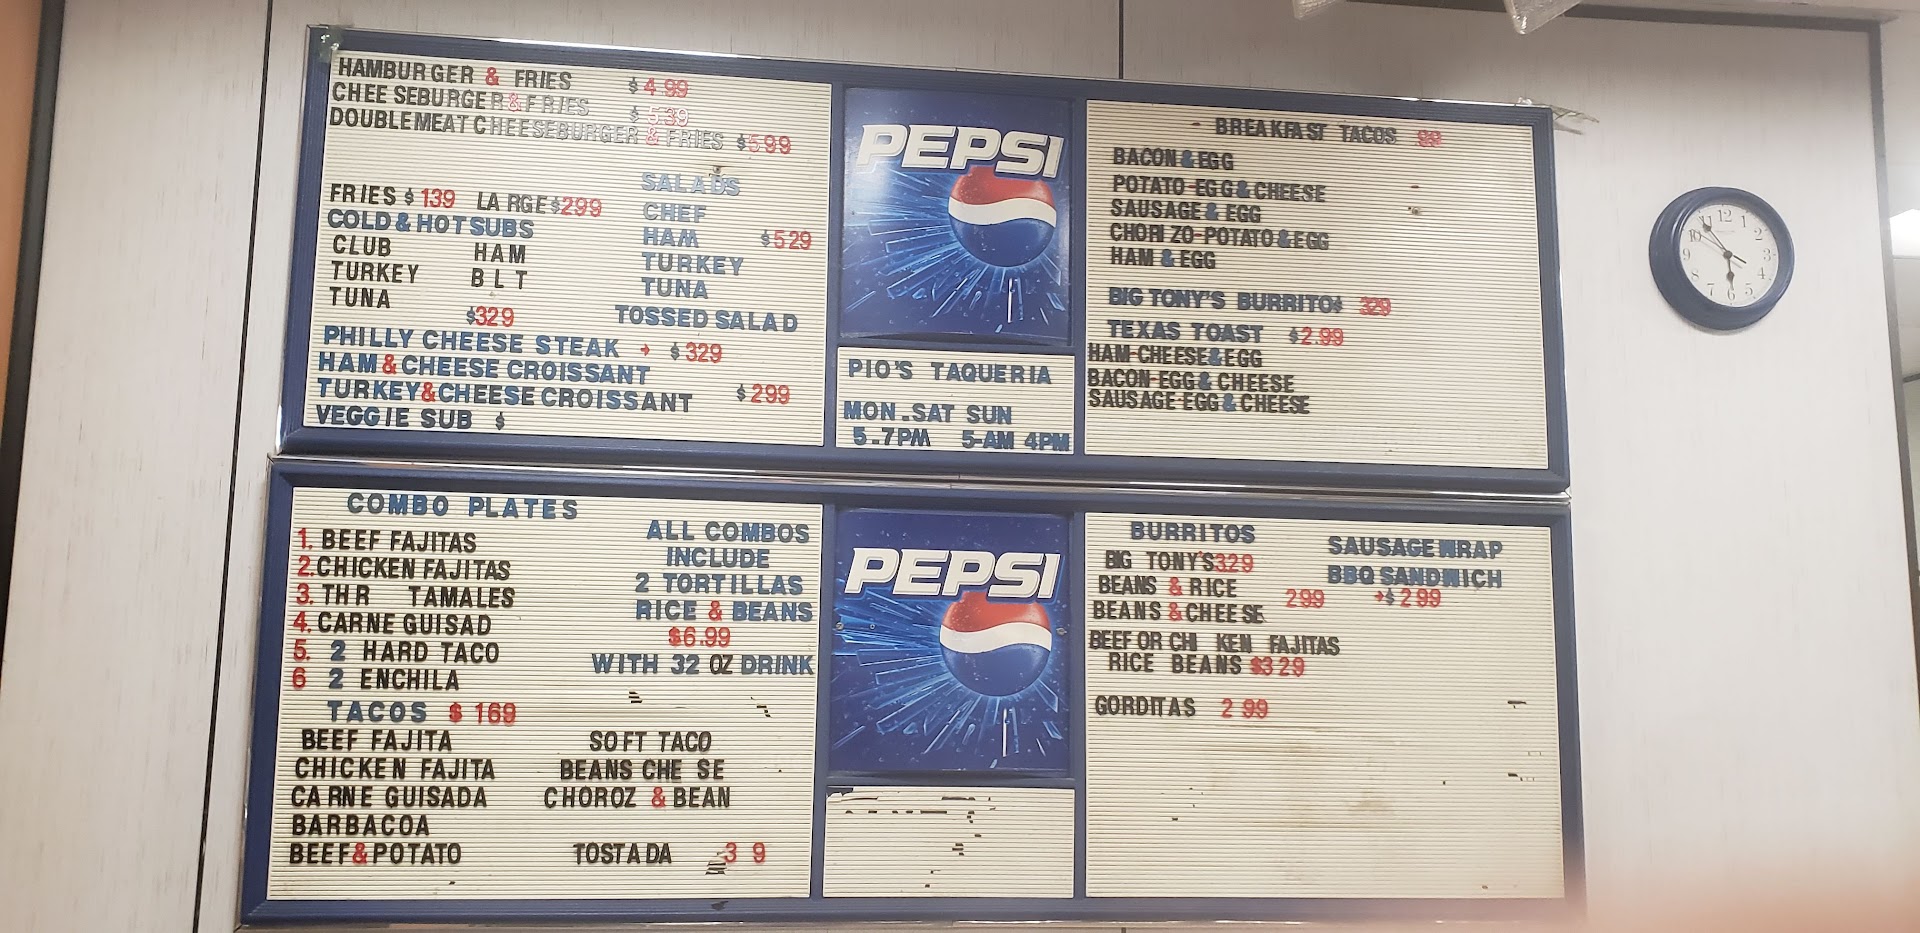 HAMBURGER & FRIES $4.99
CHEESEBURGER & FRIES $5.39
DOUBLEMEAT CHEESEBURGER & FRIES $599
FRIES $139 LARGE $299
COLD & HOT SUBS
CLUB HAM
TURKEY B L T
TUNA
$329
SALADS
CHEF
HAM $529
TURKEY
TUNA
TOSSED SALAD
PHILLY CHEESE STEAK $329
HAM & CHEESE CROISSANT
TURKEY & CHEESE CROISSANT $299
VEGGIE SUB $
PEPSI
PIO'S TAQUERIA
MON.SAT SUN
5.7PM 5-AM 4PM
- BREAKFAST TACOS 99
BACON & EGG
POTATO-EGG & CHEESE
SAUSAGE & EGG
CHORIZO-POTATO & EGG
HAM & EGG
BIG TONY'S BURRITO$ 329
TEXAS TOAST $2.99
HAM-CHEESE & EGG
BACON-EGG & CHEESE
SAUSAGE-EGG & CHEESE
COMBO PLATES
1. BEEF FAJITAS
2. CHICKEN FAJITAS
3. THR TAMALES
4. CARNE GUISAD
5. 2 HARD TACO
6 2 ENCHILA
ALL COMBOS
INCLUDE
2 TORTILLAS
RICE & BEANS
$6.99
WITH 32 OZ DRINK
TACOS $169
BEEF FAJITA SOFT TACO
CHICKEN FAJITA BEANS CHE SE
CARNE GUISADA CHOROZ & BEAN
BARBACOA
BEEF & POTATO TOSTADA 3 9
PEPSI
BURRITOS
BIG TONY'S 329
BEANS & RICE
BEANS & CHEESE 299
BEEF OR CHI KEN FAJITAS
RICE BEANS $329
GORDITAS 2 99
SAUSAGE WRAP
BBQ SANDWICH
$299
12 1 2 3 4 5 6 7 8 9 10 11